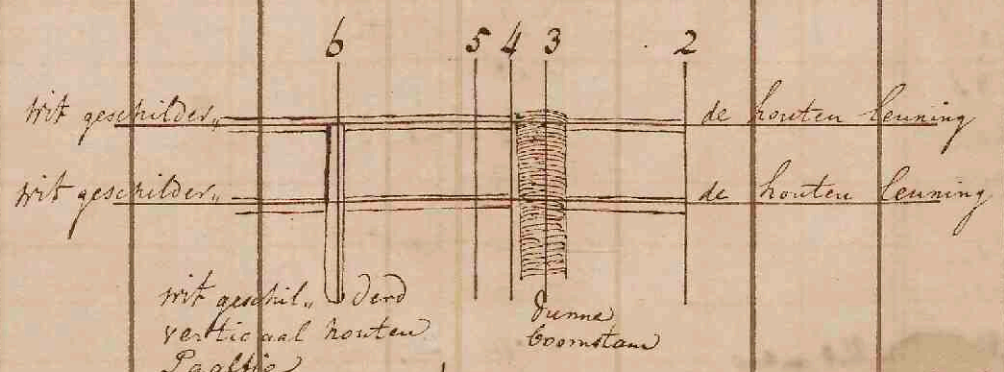 6 5 4 3 2
wit geschilder„ de houten leuning
wit geschilder„ de houten leuning
wit geschil„ derd
verticaal houten
Paaltje
dunne
boomstam